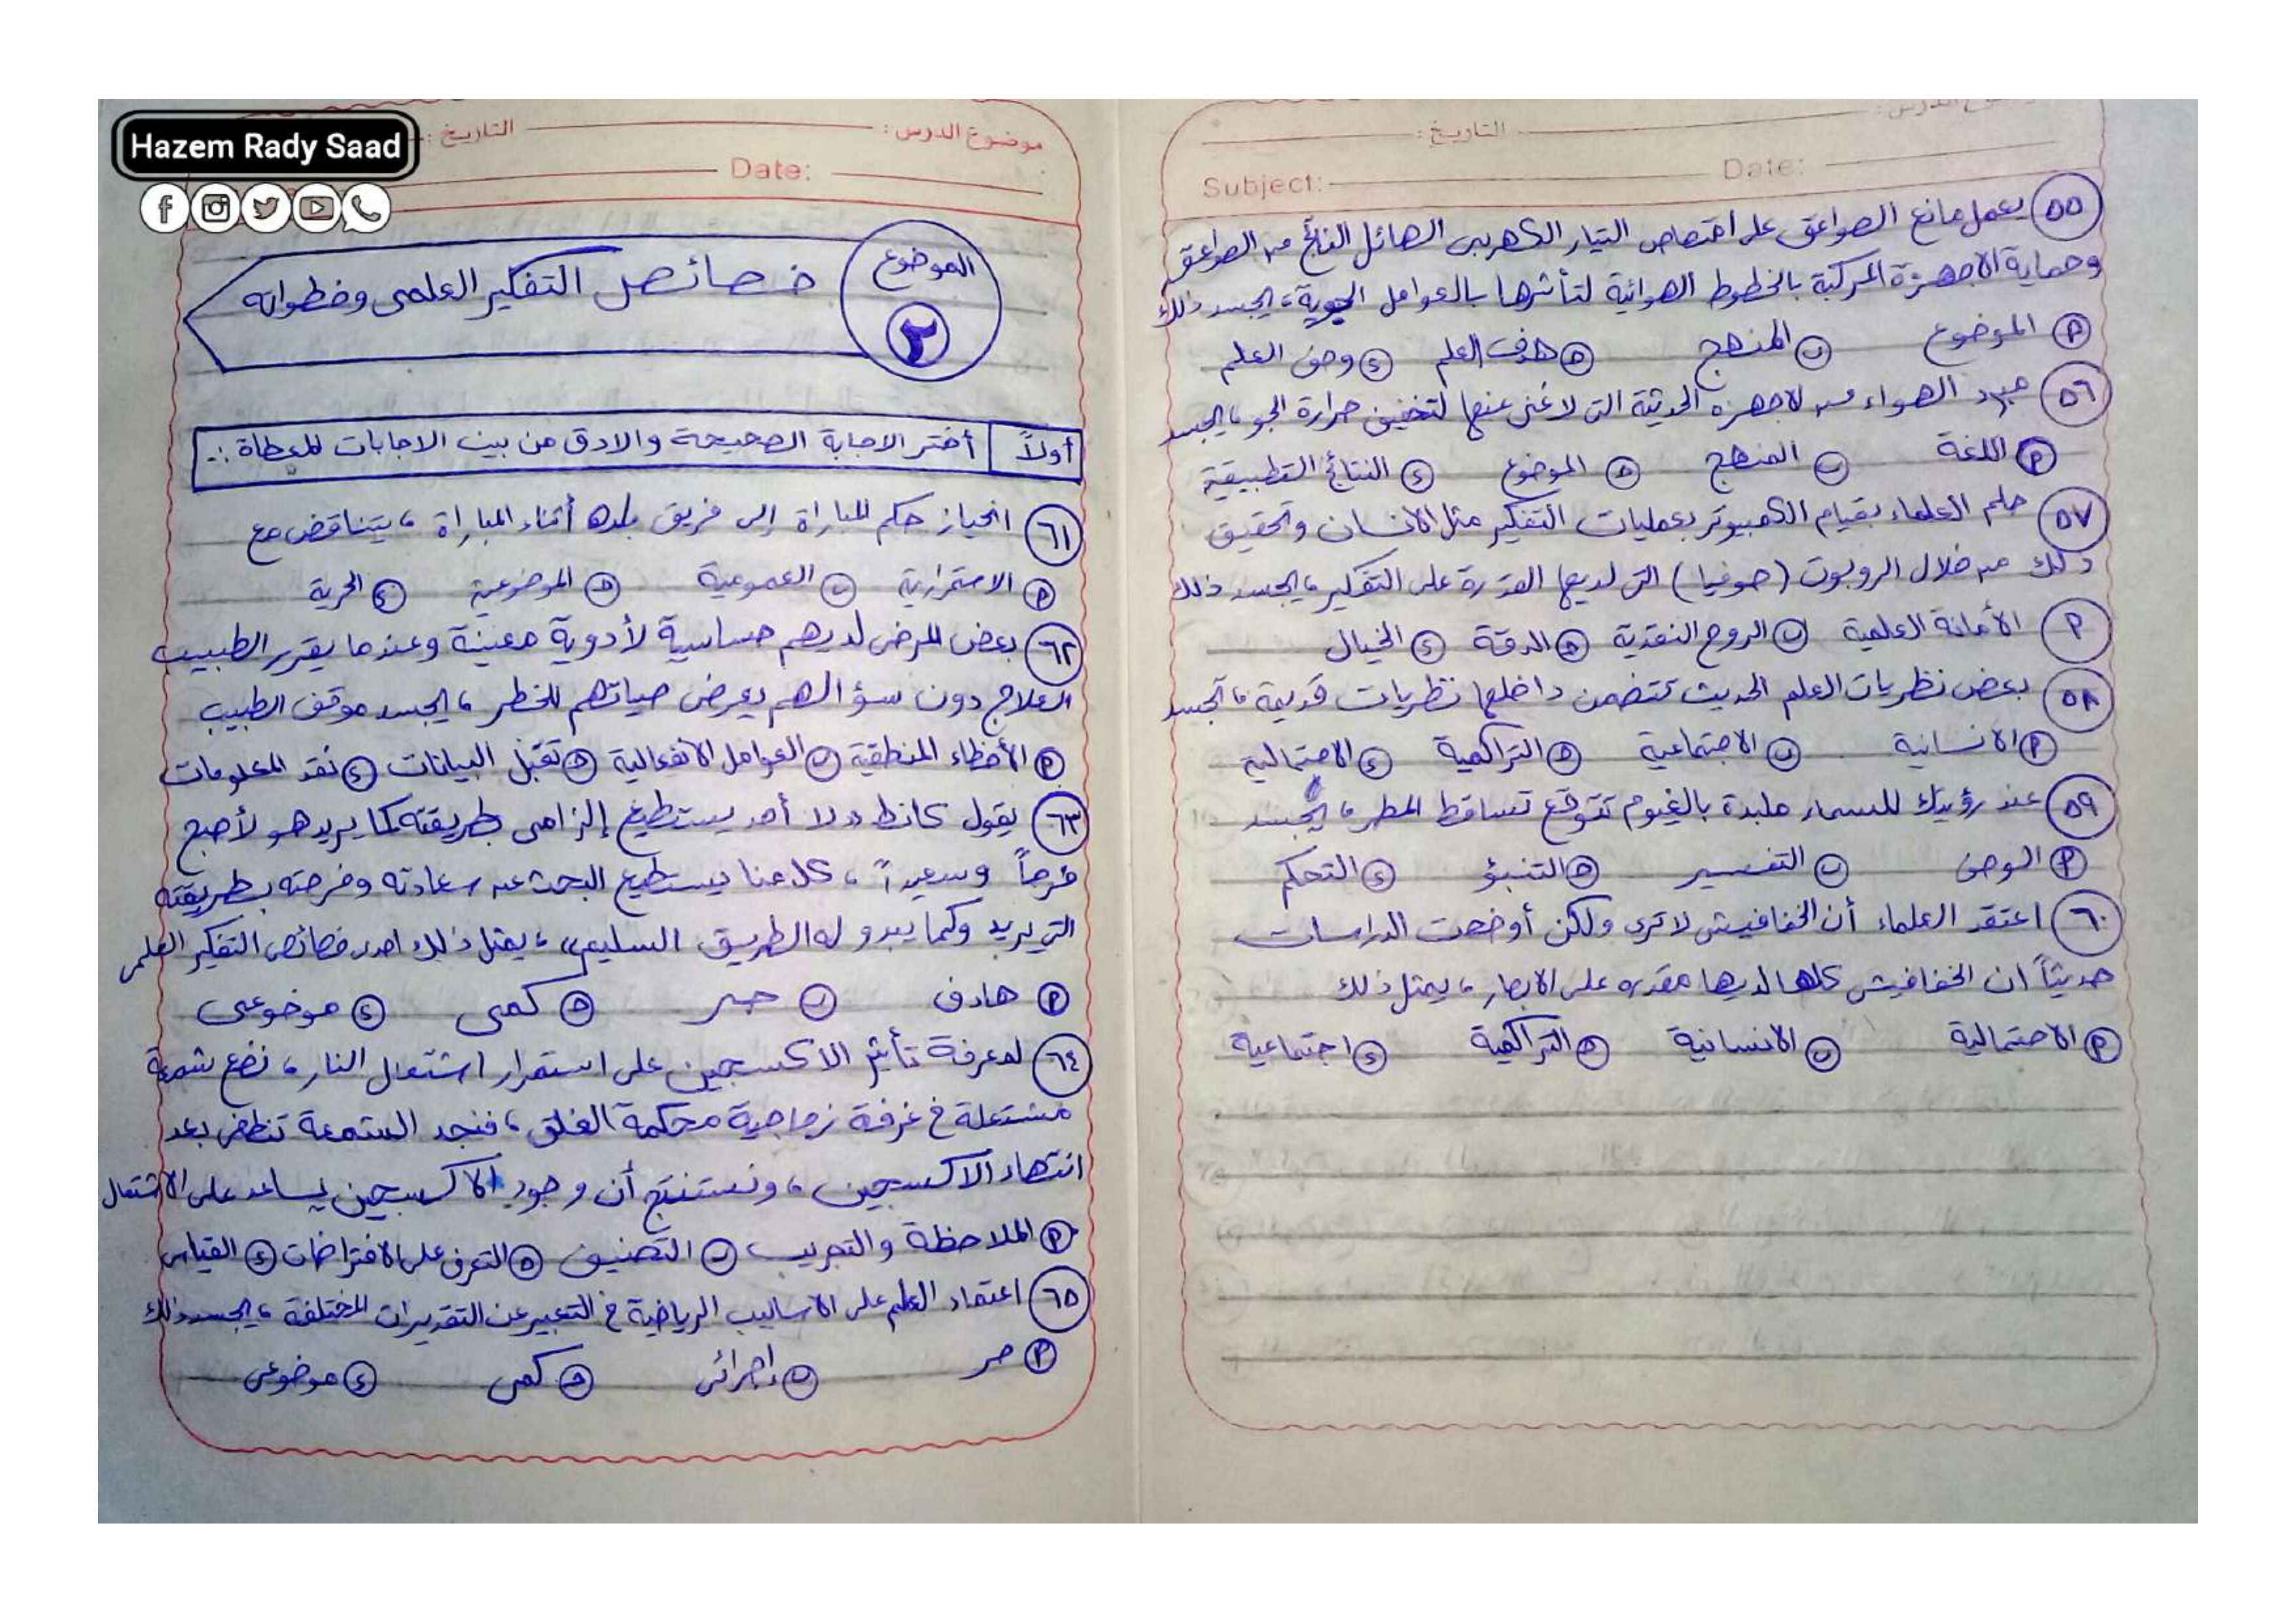 موضوع الدرس :
التاريخ :
Subject:
Date:
٥٥ يعمل مانع الصواعق على امتصاص التيار الكهربى الهائل الناتج من الصواعق
وحماية الاجهزة المركبة بالخطوط الهوائية لتأثرها بالعوامل الجوية ، يجسد ذلك
أ الموضوع ب المنهج ج هدف العلم د وصف العلم
٥٦ مبرد الهواء من لاجهزه الحديثة التى لاغنى عنها لتخفيف حرارة الجو ، يجسد
أ اللغة ب المنهج ج الموضوع د النتائج التطبيقية
٥٧ حلم العلماء بقيام الكمبيوتر بعمليات التفكير مثل الانسان وتحقيق
ذلك من خلال الروبوت (صوفيا) التى لديها القدرة على التفكير ، يجسد ذلك
أ الأمانة العلمية ب الروح النقدية ج الدقة د الخيال
٥٨ بعض نظريات العلم الحديث تتضمن داخلها نظريات قديمة ، تجسد
أ الانسانية ب الاجتماعية ج التراكمية د الاحتمالية
٥٩ عند رؤيتك للسماء ملبدة بالغيوم تتوقع تساقط المطر ، يجسد
أ الوصف ب التفسير ج التنبؤ د التحكم
٦٠ اعتقد العلماء أن الخفافيش لا ترى ولكن أوضحت الدراسات
حديثاً ان الخفافيش كلها لديها مقدره على الابصار ، يمثل ذلك
أ الاحتمالية ب الانسانية ج التراكمية د اجتماعية
Hazem Rady Saad
موضوع الدرس :
التاريخ :
Date:
الموضوع ٢ خصائص التفكير العلمى وخطواته
أولاً أختر الاجابة الصحيحة والادق من بين الاجابات المعطاة :-
٦١ انحياز حكم المباراة إلى فريق بلده أثناء المباراة ، يتناقض مع
أ الاستمرارية ب العمومية ج الموضوعية د الحرية
٦٢ بعض المرضى لديهم حساسية لأدوية معينة وعندما يقرر الطبيب
العلاج دون سؤالهم يعرض حياتهم للخطر ، يجسد موقف الطبيب
أ الأخطاء المنطقية ب العوامل الانفعالية ج تقبل البيانات د نقد المعلومات
٦٣ يقول كانط "لا أحد يستطيع إلزامى بطريقته كما يريد هو لأصبح
فرحاً وسعيداً ، كلا منا يستطيع البحث عن سعادته وفرحته بطريقته
التى يريد وكما يبدو له الطريق السليم" ، يمثل ذلك احدى خصائص التفكير العلمى
أ هادف ب حر ج كمى د موضوعى
٦٤ لمعرفة تأثير الاكسجين على استمرار اشتعال النار ، نضع شمعة
مشتعلة فى غرفة زجاجية محكمة الغلق ، فنجد الشمعة تنطفى بعد
انتهاء الاكسجين ، ونستنتج أن وجود الاكسجين يساعد على الاشتعال
أ الملاحظة والتجريب ب التصنيف ج التعرف على الافتراضات د القياس
٦٥ اعتماد العلم على الاساليب الرياضية فى التعبير عن التقديرات المختلفة ، يجسد ذلك
أ حر ب إجرائى ج كمى د موضوعى